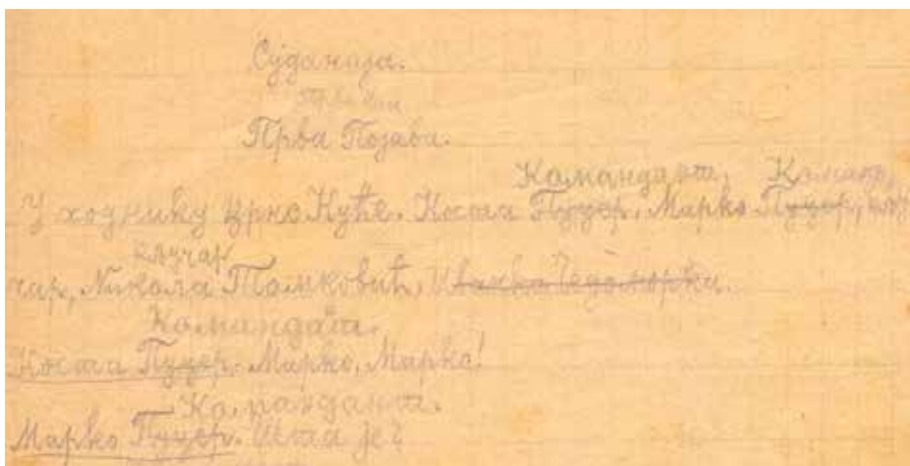 Суданија.
Први Чин
Прва Појава.
Командант, Команд,
У ходнику Црне Куће. Коста Пудер, Марко Пудер, кљу
кључар
чар, Никола Томковић,
Командат.
Коста Пудер. Марко, Марко!
Командант.
Марко Пудер. Шта је?